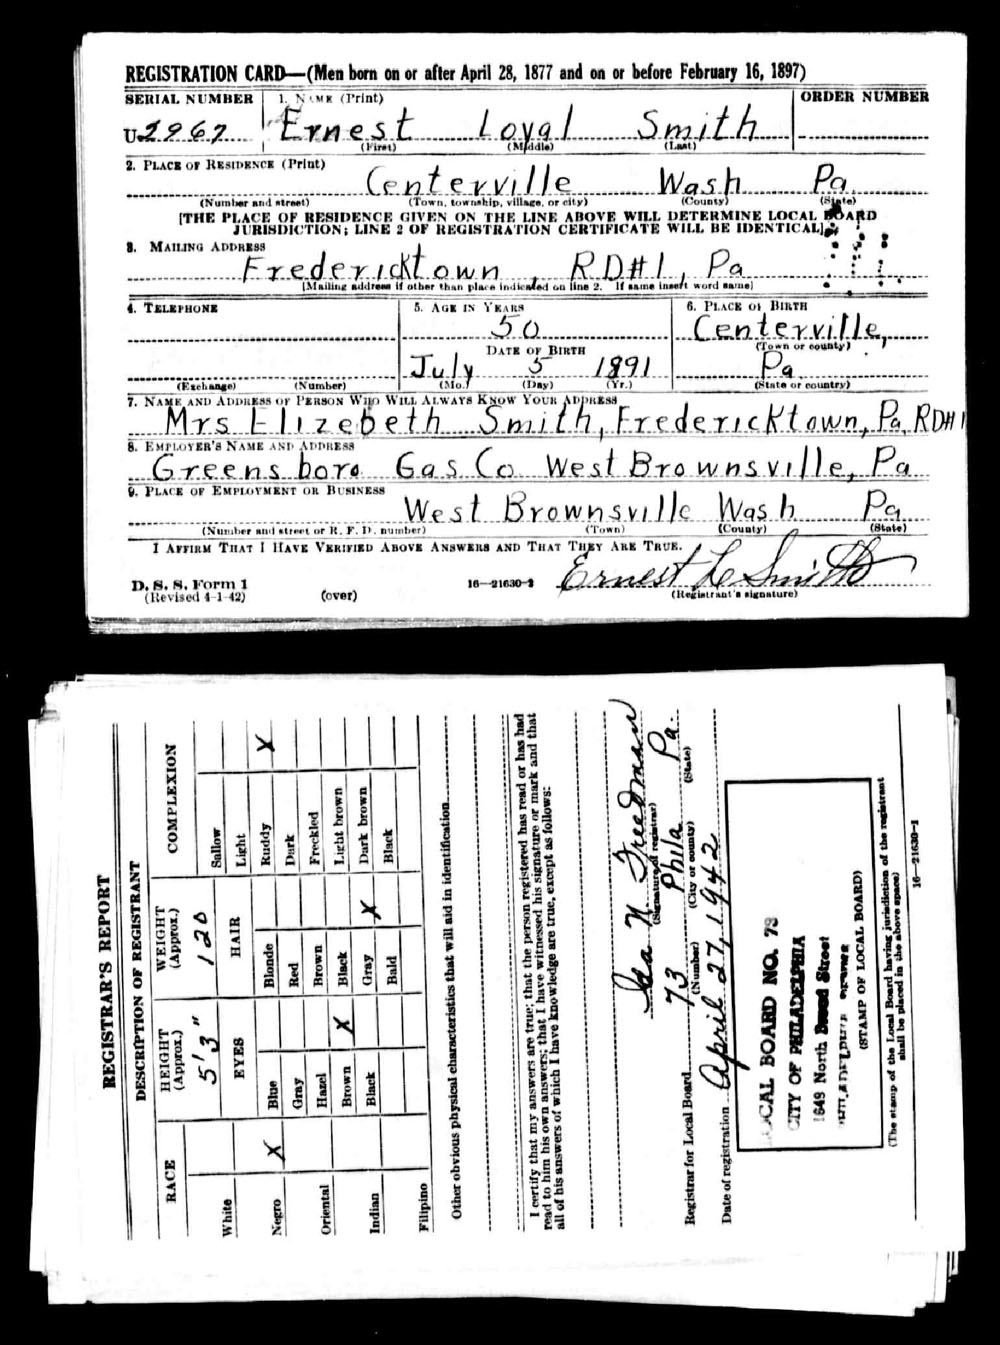 REGISTRATION CARD—(Men born on or after April 28, 1877 and on or before February 16, 1897)
SERIAL NUMBER 1. NAME (Print) ORDER NUMBER
U 2967 Ernest Loyal Smith
(First) (Middle) (Last)
2. PLACE OF RESIDENCE (Print)
Centerville Wash Pa
(Number and street) (Town, township, village, or city) (County) (State)
[THE PLACE OF RESIDENCE GIVEN ON THE LINE ABOVE WILL DETERMINE LOCAL BOARD
JURISDICTION; LINE 2 OF REGISTRATION CERTIFICATE WILL BE IDENTICAL]
3. MAILING ADDRESS
Fredericktown, RD#1, Pa
[Mailing address if other than place indicated on line 2. If same insert word same]
4. TELEPHONE 5. AGE IN YEARS 6. PLACE OF BIRTH
50 Centerville,
DATE OF BIRTH (Town or county)
July 5 1891 Pa
(Exchange) (Number) (Mo.) (Day) (Yr.) (State or country)
7. NAME AND ADDRESS OF PERSON WHO WILL ALWAYS KNOW YOUR ADDRESS
Mrs Elizebeth Smith, Fredericktown, Pa, RD#1
8. EMPLOYER'S NAME AND ADDRESS
Greensboro Gas Co West Brownsville, Pa
9. PLACE OF EMPLOYMENT OR BUSINESS
West Brownsville Wash Pa
(Number and street or R. F. D. number) (Town) (County) (State)
I AFFIRM THAT I HAVE VERIFIED ABOVE ANSWERS AND THAT THEY ARE TRUE.
D. S. S. Form 1 16—21630-2 Ernest L Smith
(Revised 4-1-42) (over) (Registrant's signature)
REGISTRAR'S REPORT
DESCRIPTION OF REGISTRANT
RACE HEIGHT (Approx.) WEIGHT (Approx.) COMPLEXION
5' 3" 120
White EYES HAIR Sallow
Light
Negro X Blue Blonde Ruddy X
Gray Red Dark
Oriental Hazel Brown Freckled
Brown X Black Light brown
Indian Black Gray X Dark brown
Bald Black
Filipino
Other obvious physical characteristics that will aid in identification
I certify that my answers are true; that the person registered has read or has had
read to him his own answers; that I have witnessed his signature or mark and that
all of his answers of which I have knowledge are true, except as follows:
Freedman
(Signature of registrar)
Registrar for Local Board 73 Phila Pa.
(Number) (City or county) (State)
Date of registration April 27, 1942
LOCAL BOARD NO. 73
CITY OF PHILADELPHIA
1649 North Broad Street
(STAMP OF LOCAL BOARD)
(The stamp of the Local Board having jurisdiction of the registrant
shall be placed in the above space)
16—21630-1